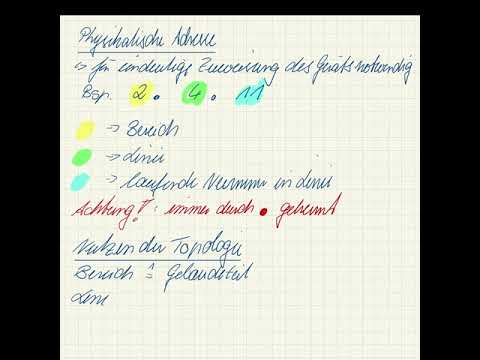 Physikalische Adresse
=> für eindeutige Zuweisung des Geräts notwendig
Bsp. 2 . 4 . 11
=> Bereich
=> Linie
=> laufende Nummer in Linie
Achtung!: immer durch . getrennt
Nutzen der Topologie
Bereich ≙ Gebäudeteil
Linie